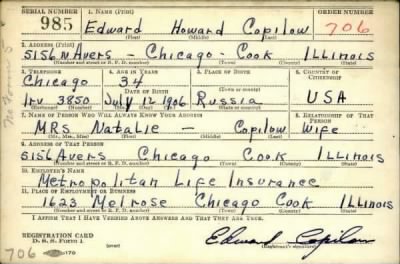 SERIAL NUMBER 1. NAME (Print) ORDER NUMBER
985 Edward Howard Copilow 706
(First) (Middle) (Last)
2. ADDRESS (Print)
5156 N Avers - Chicago - Cook ILLINOIS
(Number and street or R. F. D. number) (Town) (County) (State)
3. TELEPHONE 4. AGE IN YEARS 5. PLACE OF BIRTH 6. COUNTRY OF CITIZENSHIP
Chicago 34
DATE OF BIRTH (Town or county)
Irv 3850 July 12 1906 Russia USA
(Exchange) (No.) (Mo.) (Day) (Yr.) (State or country)
7. NAME OF PERSON WHO WILL ALWAYS KNOW YOUR ADDRESS 8. RELATIONSHIP OF THAT PERSON
MRS Natalie - Copilow Wife
(Mr., Mrs., Miss) (First) (Middle) (Last)
9. ADDRESS OF THAT PERSON
5156 Avers Chicago Cook ILLINOIS
(Number and street or R. F. D. number) (Town) (County) (State)
10. EMPLOYER'S NAME
Metropolitan Life Insurance
11. PLACE OF EMPLOYMENT OR BUSINESS
1623 Melrose Chicago Cook ILLINOIS
(Number and street or R. F. D. number) (Town) (County) (State)
I AFFIRM THAT I HAVE VERIFIED ABOVE ANSWERS AND THAT THEY ARE TRUE.
REGISTRATION CARD
D. S. S. FORM 1 Edward Copilow
(over) (Registrant's signature)
706